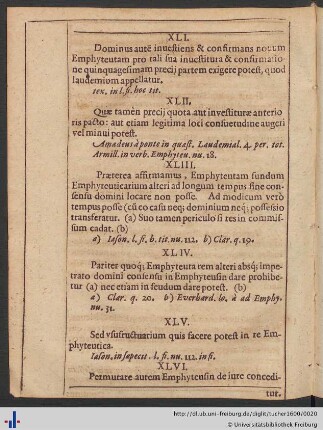 XLI.
Dominus autē inuestiens & confirmans nouum
Emphyteutam pro tali sua inuestitura & confirmatio-
ne quinquagesimam precij partem exigere potest, quod
laudemium appellatur.
tex. in l. fi. hoc tit.
XLII.
Quæ tamèn precij quota aut inuestituræ anterio
ris pacto: aut etiam legitima loci consuetudine augeri
vel minui potest.
Amadeus à ponte in quæst. Laudemial. 4. per. tot.
Armill. in verb. Emphyteu. nu. 18.
XLIII.
Præterea affirmamus, Emphyteutam fundum
Emphyteuticarium alteri ad longum tempus sine con-
sensu domini locare non posse. Ad modicum verò
tempus posse (cū eo casu neq; dominium neq; possessio
transferatur. (a) Suo tamen periculo si res in commis-
sum cadat. (b)
a) Iason. l. fi. b. tit. nu. 112. b) Clar. q. 19.
XLIV.
Pariter quoq; Emphyteuta rem alteri absq; impe-
trato domini consensu in Emphyteusin dare prohibe-
tur (a) nec etiam in feudum dare potest. (b)
a) Clar. q. 20. b) Everhard. lo. à ad Emphy.
nu. 31.
XLV.
Sed vsufructuarium quis facere potest in re Em-
phyteutica.
Iason. in sapecit. l. fi. nu. 112. in fi.
XLVI.
Permutare autem Emphyteusin de iure concedi-
tur.
http://dl.ub.uni-freiburg.de/diglit/tucher1600/0020
© Universitätsbibliothek Freiburg